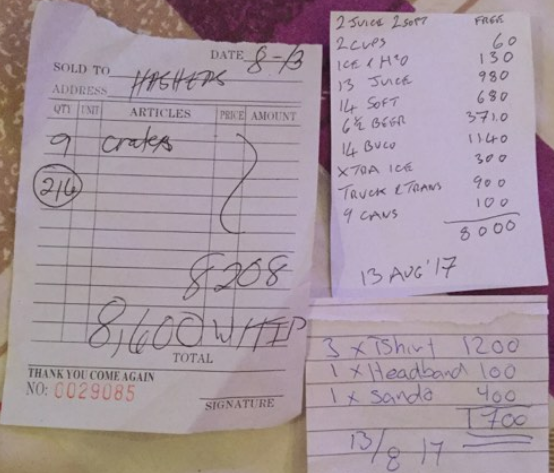 DATE 8-13
SOLD TO HASHERS
ADDRESS
QTY UNIT ARTICLES PRICE AMOUNT
9 crates
216
8208
8,600 W/TIP
TOTAL
THANK YOU COME AGAIN
NO: 0029085
SIGNATURE
2 JUICE 2 SOFT FREE
2 CUPS 60
ICE & H2O 130
13 JUICE 980
14 SOFT 680
6½ BEER 3710
14 BUCO 1140
XTRA ICE 300
TRUCK & TRANS 900
9 CANS 100
8000
13 AUG '17
3 x TShirt 1200
1 x Headband 100
1 x Sando 400
1700
13/8 17